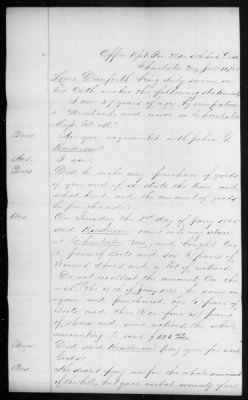 Louis Danforth being duly sworn on
his oath makes the following statement
I am 27 years of age by occupation
a and reside in Charleston
Miss Co Mo
Ques Are you acquainted with John G.
Henderson
Ans. I am
Ques Did he make any purchase of goods
of you, and if so state the time, and
what kind and the amount of goods
he purchased
Ans On Tuesday the 3rd day of Jany 1865
said Henderson came into my store
at Charleston Mo, and bought two
pair of Boots and six pair of
Shoes and a lot of notions.
Do not recollect the amount. On the
day of Jany he came in
again and purchased pair of
Boots and three or four pair
of shoes, and some notions, the whole
amounting to some
Ques Did said Henderson pay you for said
Goods?
Ans He didnt pay me for the whole amount
of the bill, he gave verbal security for